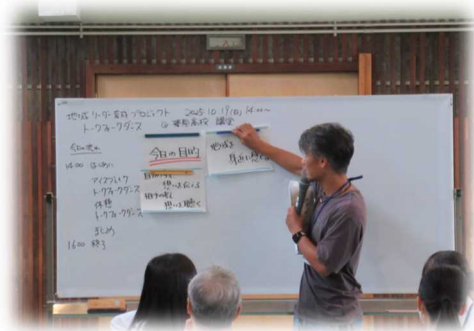 地域リーダー育成プロジェクト 2025.10.19(日) 14:00~
トークフォークダンス @ 高校 講堂
今日の流れ
14:00 はじめに
アイスブレイク
トークフォークダンス
休憩
トークフォークダンス
まとめ
16:00 終了
今日の目的
自分の考え
想いを伝える
相手の考え
想いを聴く
地域を
身近に感じる